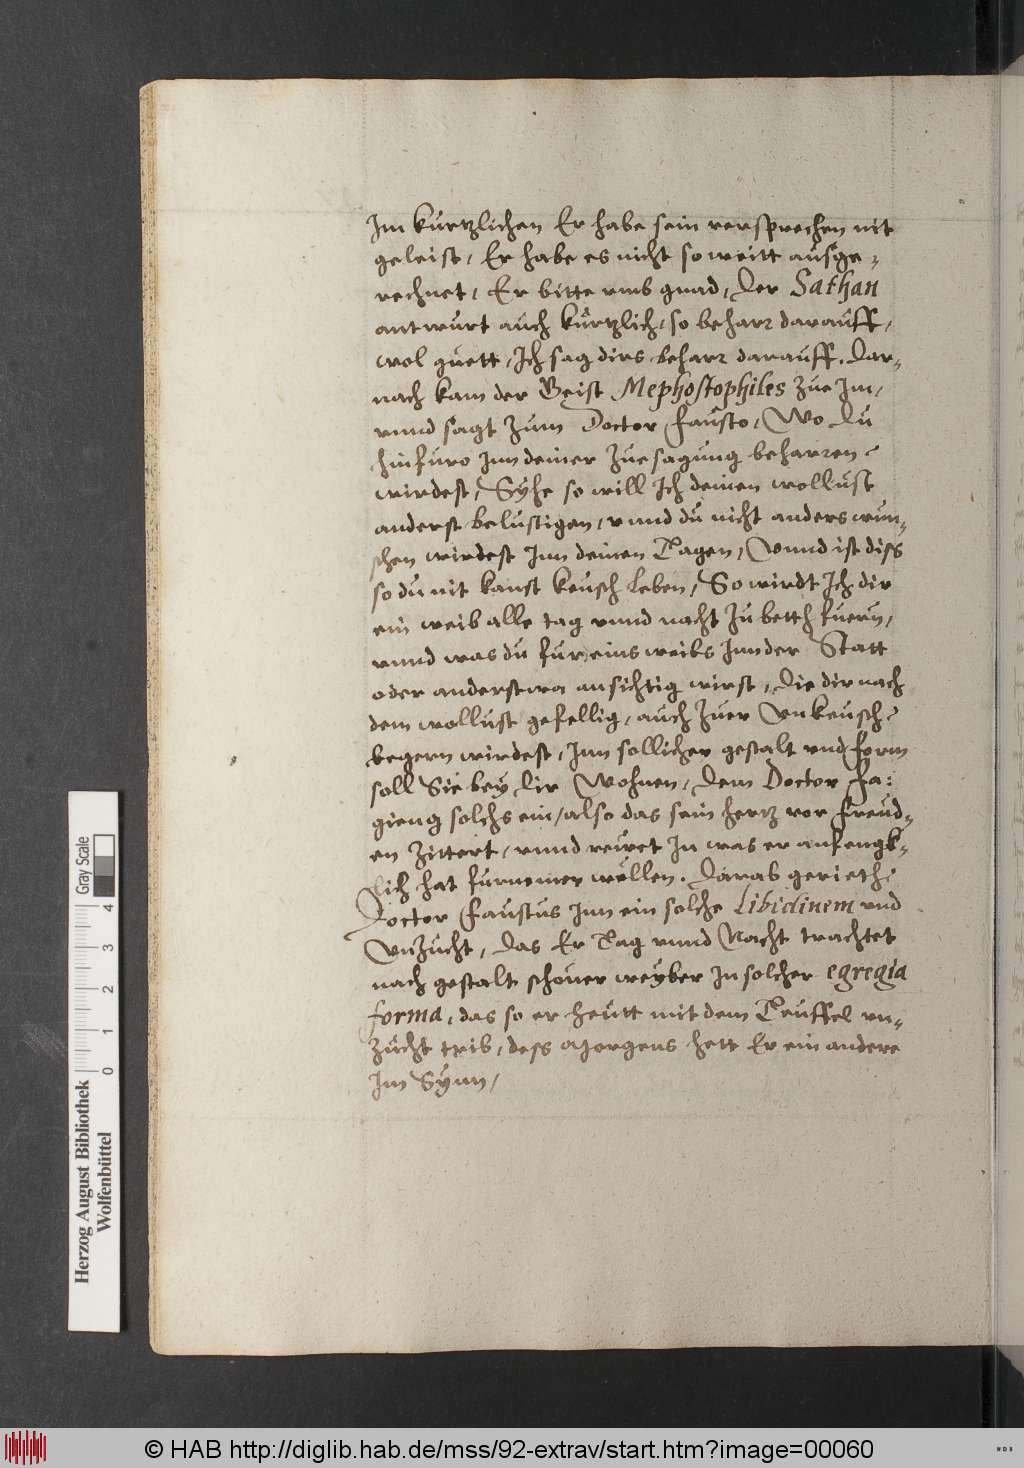 Im kurtzlichen Er habe sein versprechen nit
geleist, Er habe es nicht so weitt ausge-
rechnet, Er bitte vmb gnad, Der Sathan
antwurt auch kürtzlich, so beharr darauff,
wol guett, Ich sag dirs beharr darauff. Dar-
nach kam der Geist Mephostophiles zue Im,
vnnd sagt zum Doctor Fausto, Wo Du
hinfuro Inn deiner zuesagung beharren
wirdest, Syhe so will Ich deinen wollust
anderst belustigen, vnnd du nicht anders wun-
schen wirdest Inn deinen Tagen, Vnnd ist diss
so du nit kanst keusch leben, So wirdt Ich dir
ein weib alle tag vnnd nacht zu betth fuern,
vnnd was du fur eins weibs Inn der Statt
oder anderstwa ansichtig wirst, Die dir nach
dem wollust gefellig, auch zuer Vnkeusch
begern wirdest, Inn sollicher gestalt vnd form
soll Sie bey Dir Wohnen, Dem Doctor Fa:
gieng solchs ein, also das sein hertz vor freud-
en zittert, vnnd rewet In was er anfengk-
lich hat furnemen wöllen. Darab gerieth
Doctor Faustus Inn ein solche Libidinem vnd
Vnzucht, Das Er Tag vnnd Nacht trachtet
nach gestalt schöner weyber In solcher egregia
forma, das so er heutt mit dem Teuffel vn-
zücht trib, dess Morgens hett Er ein andere
Im Synn,
Herzog August Bibliothek
Wolfenbüttel
Gray Scale
0 1 2 3 4
© HAB http://diglib.hab.de/mss/92-extrav/start.htm?image=00060